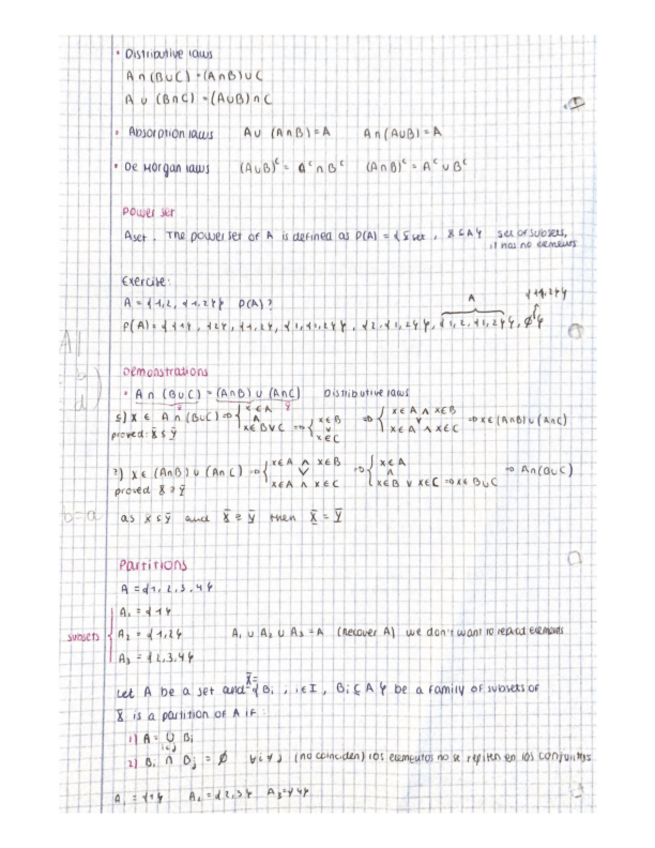 • Distributive laws
A ∩ (B∪C) = (A∩B)∪C
A ∪ (B∩C) = (A∪B)∩C
• Absorption laws A∪ (A∩B) = A A∩(A∪B) = A
• De Morgan laws (A∪B)ᶜ = Aᶜ ∩ Bᶜ (A∩B)ᶜ = Aᶜ ∪ Bᶜ
Power set
A set. The power set of A is defined as P(A) = { X set, X ⊆ A } set of subsets,
it has no elements
Exercise:
A = {1,2, {1,2}} P(A)?
A {{1,2}}
P(A) = {{1}, {2}, {1,2}, {1,{1,2}}, {2,{1,2}}, {1,2,{1,2}}, ∅}
Demonstrations
• A ∩ (B∪C) = (A∩B) ∪ (A∩C) Distributive laws
⊆) x ∈ A ∩ (B∪C) ⇒ { x ∈ A ∧ x ∈ B∨C ⇒ { x∈B ∨ x∈C ⇒ { x∈A ∧ x∈B ∨ x∈A ∧ x∈C ⇒ x∈(A∩B)∪(A∩C)
proved: X ⊆ Y
?) x ∈ (A∩B) ∪ (A∩C) ⇒ { x∈A ∧ x∈B ∨ x∈A ∧ x∈C ⇒ { x∈A ∧ x∈B ∨ x∈C ⇒ x∈B∪C ⇒ A∩(B∪C)
proved X ⊇ Y
as X ⊆ Y and X ⊇ Y then X = Y
Partitions
A = {1, 2, 3, 4}
A₁ = {1}
subsets A₂ = {1,2} A₁ ∪ A₂ ∪ A₃ = A (Recover A) we don't want to repeat elements
A₃ = {2,3,4}
Let A be a set and X = {Bi, i∈I, Bi ⊆ A} be a family of subsets of
X is a partition of A if:
1) A = ∪ Bi
i∈J
2) Bi ∩ Bj = ∅ ∀ i ≠ j (no coinciden) los elementos no se repiten en los conjuntos
A₁ = {1} A₂ = {2,3} A₃ = {4}